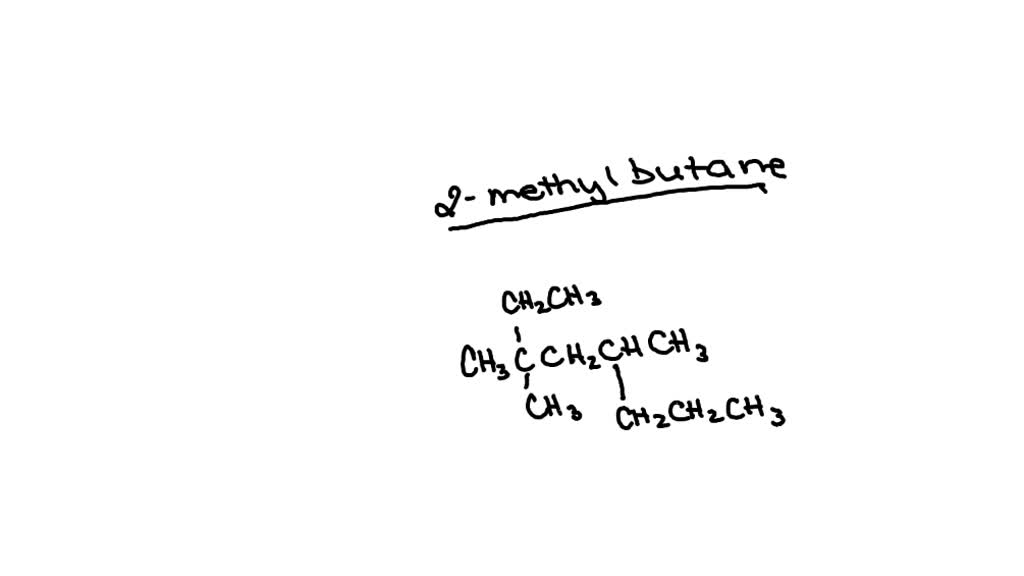 2-methylbutane
CH2CH3
CH3 C CH2CH CH3
CH3
CH2CH2CH3